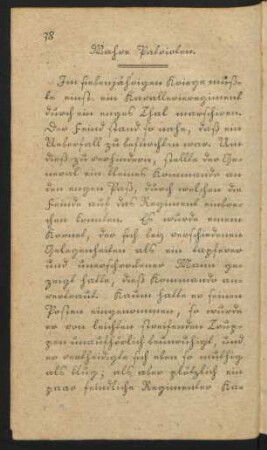 38
Wahre Patrioten.
Im siebenjährigen Kriege muß-
te einst ein Kavallerieregiment
durch ein enges Thal marschieren.
Der Feind stand so nahe, daß ein
Ueberfall zu befürchten war. Um
dieß zu verhindern, stellte der Ge-
neral ein kleines Kommando an
den engen Paß, durch welchen die
Feinde auf das Regiment einbre-
chen konnten. Es wurde einem
Kornet, der sich bey verschiedenen
Gelegenheiten als ein tapferer
und unerschrockener Mann ge-
zeigt hatte, dieß Kommando an-
vertraut. Kaum hatte er seinen
Posten eingenommen, so wurde
er von leichten streifenden Trup-
pen unaufhörlich beunruhigt, und
er vertheidigte sich eben so muthig
als klug; als aber plötzlich ein
paar feindliche Regimenter Ka-